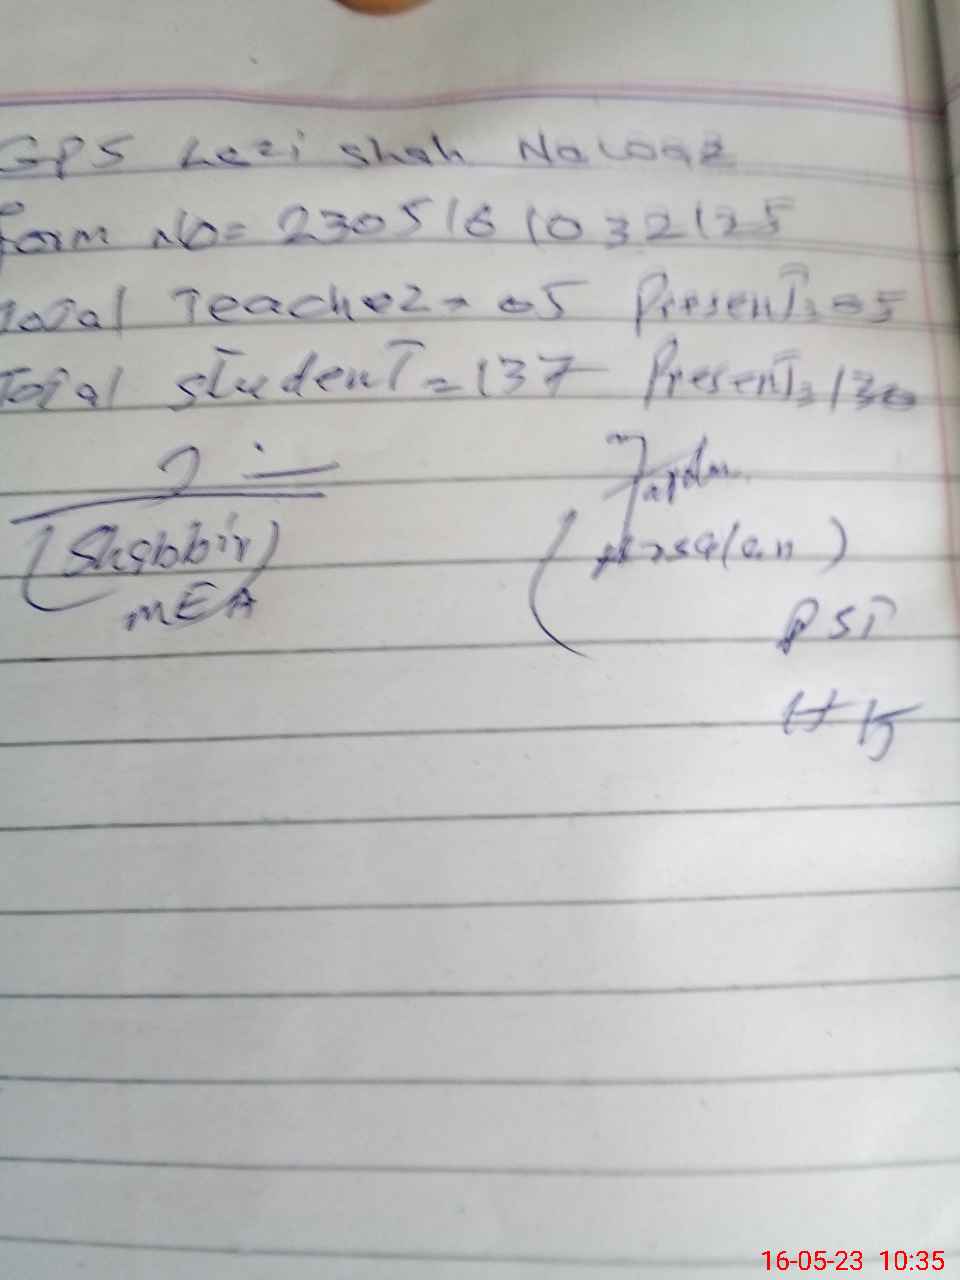 GPS Lezi Shah Nalooz
Form No= 230516 1032125
Total Teacher= 05 Present= 05
Total student = 137 Present= 130
(Shabbir)
MEA
(Arsalan)
PST
16-05-23 10:35